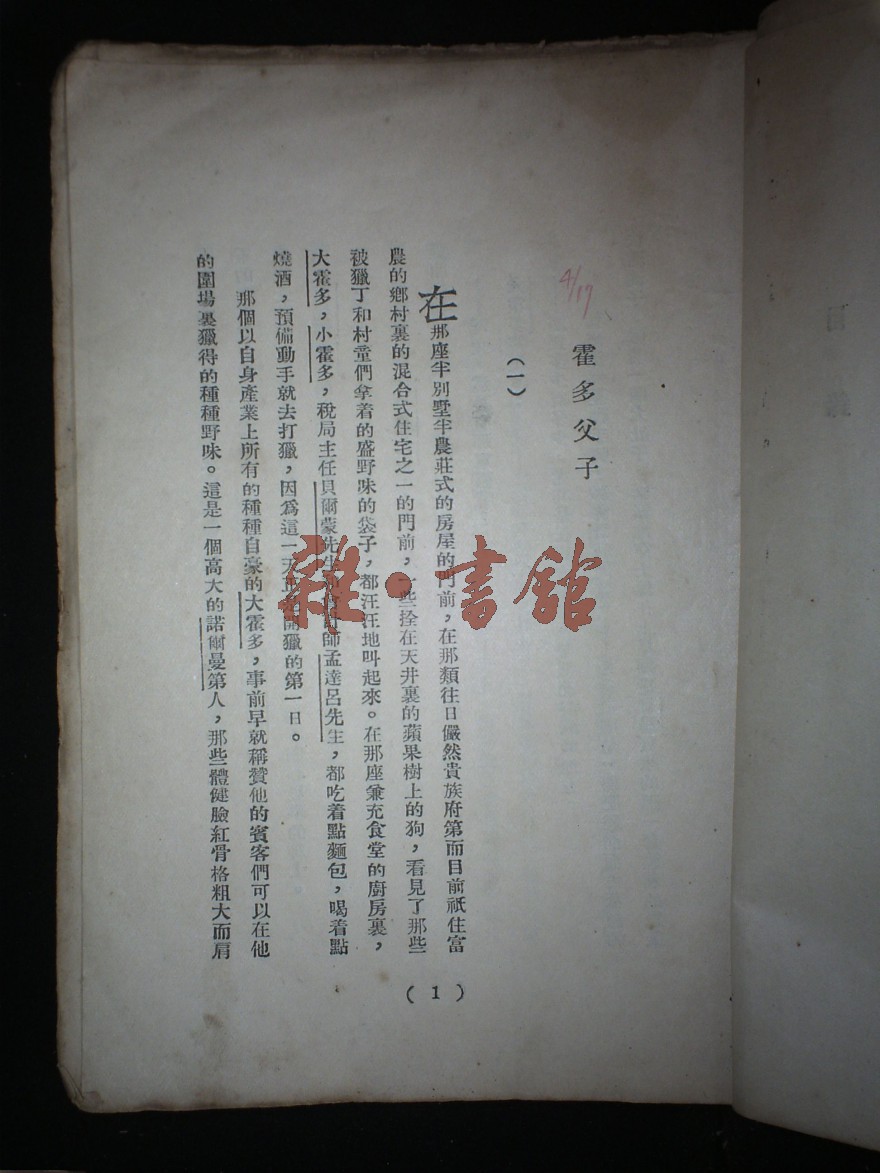 4/17
霍多父子
(一)
在那座半別墅半農莊式的房屋的門前，在那類往日儼然貴族府第而目前祇住富
農的鄉村裏的混合式住宅之一的門前，一些拴在天井裏的蘋果樹上的狗，看見了那些
被獵丁和村童們拿着的盛野味的袋子，都汪汪地叫起來。在那座兼充食堂的廚房裏，
大霍多，小霍多，稅局主任貝爾蒙先生師孟達呂先生，都吃着點麵包，喝着點
燒酒，預備動手就去打獵，因爲這一天正是開獵的第一日。
那個以自身產業上所有的種種自豪的大霍多，事前早就稱贊他的賓客們可以在他
的圍場裏獵得的種種野味。這是一個高大的諾爾曼第人，那些體健臉紅骨格粗大而肩
(1)
雜·書館